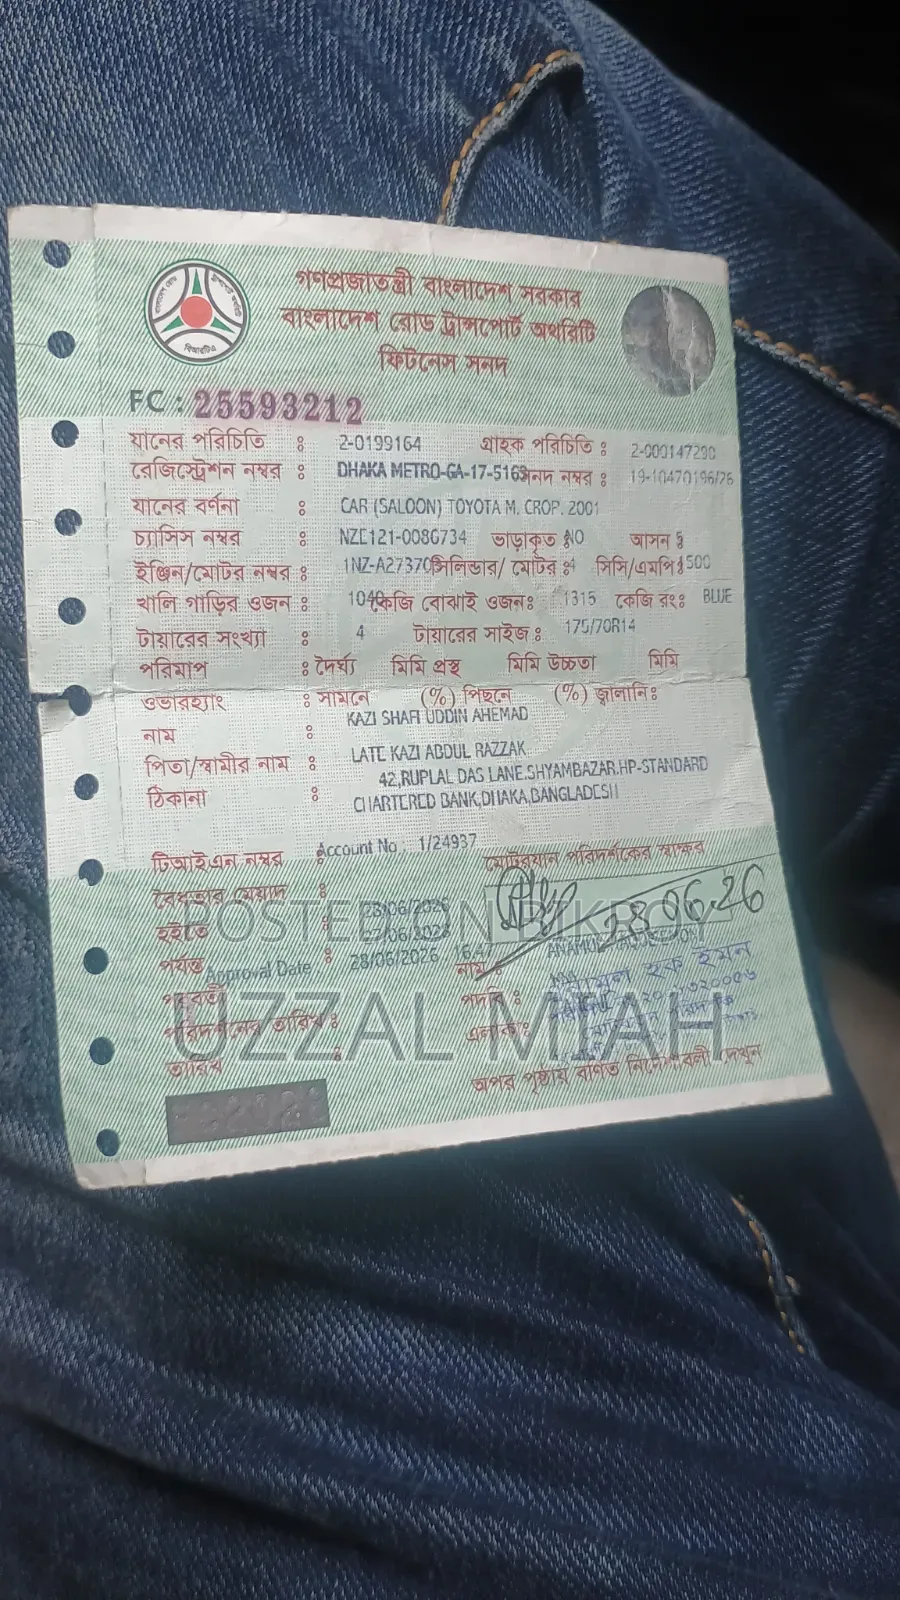 গণপ্রজাতন্ত্রী বাংলাদেশ সরকার
বাংলাদেশ রোড ট্রান্সপোর্ট অথরিটি
বিআরটিএ
ফিটনেস সনদ
FC : 25593212
যানের পরিচিতি : 2-0199164 গ্রাহক পরিচিতি : 2-000147290
রেজিস্ট্রেশন নম্বর : DHAKA METRO-GA-17-5163 সনদ নম্বর : 19-10470196/76
যানের বর্ণনা : CAR (SALOON) TOYOTA M. CROP. 2001
চ্যাসিস নম্বর : NZE121-0086734 ভাড়াকৃত : NO আসন : 5
ইঞ্জিন/মোটর নম্বর : 1NZ-A273703 সিলিন্ডার/ মোটর : 4 সিসি/এমপি : 1500
খালি গাড়ির ওজন : 1040 কেজি বোঝাই ওজন: 1315 কেজি রং: BLUE
টায়ারের সংখ্যা : 4 টায়ারের সাইজ : 175/70R14
পরিমাপ : দৈর্ঘ্য মিমি প্রস্থ মিমি উচ্চতা মিমি
ওভারহ্যাং : সামনে (%) পিছনে (%) জ্বালানি:
নাম : KAZI SHAFI UDDIN AHEMAD
পিতা/স্বামীর নাম : LATE KAZI ABDUL RAZZAK
ঠিকানা : 42,RUPLAL DAS LANE,SHYAMBAZAR,HP-STANDARD
CHARTERED BANK,DHAKA,BANGLADESH
টিআইএন নম্বর : Account No : 1/24937 মোটরযান পরিদর্শকের স্বাক্ষর
বৈধতার মেয়াদ :
হইতে : 28/06/2026 28.06.26
POSTED ON BIKROY
পর্যন্ত
Approval Date : 28/06/2026 16:47 নাম :
পরবর্তী পদবি :
UZZAL MIAH
পরিদর্শনের তারিখ : এলাকা:
তারিখ :
অপর পৃষ্ঠায় বর্ণিত নির্দেশাবলী দেখুন